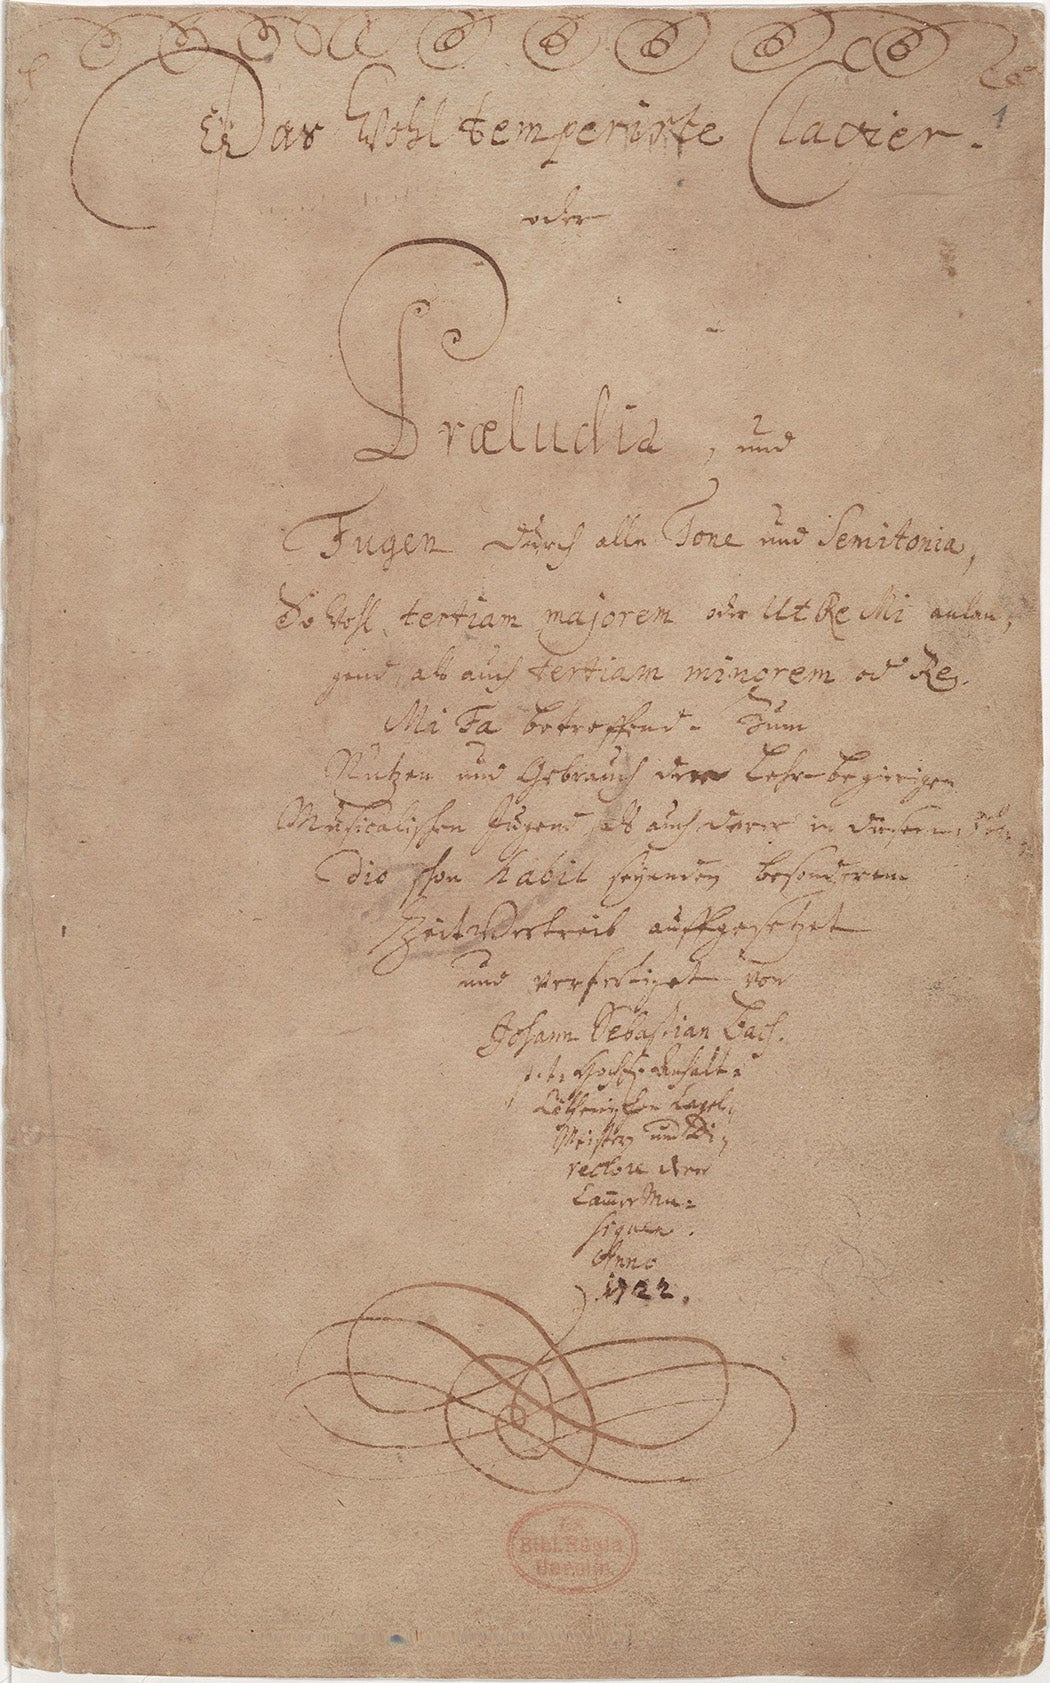 Das Wohltemperirte Clavier.
oder
Præludia, und
Fugen durch alle Tone und Semitonia,
So wohl tertiam majorem oder Ut Re Mi anlan,
gend, als auch tertiam minorem od Re
Mi Fa betreffend. Zum
Nutzen und Gebrauch der Lehr-begierigen
Musicalischen Jugend, als auch derer in diesem Stu,
dio schon habil seyenden besonderem
ZeitVertreib auffgesetzet
und verfertiget von
Johann Sebastian Bach.
p. t. HochF. Anhalt=
Cöthenischen Capel,
Meistern und Di,
rectore derer
Cammer Mu=
siquen.
Anno
1722.
1
Bibl. Regia
Berolin.